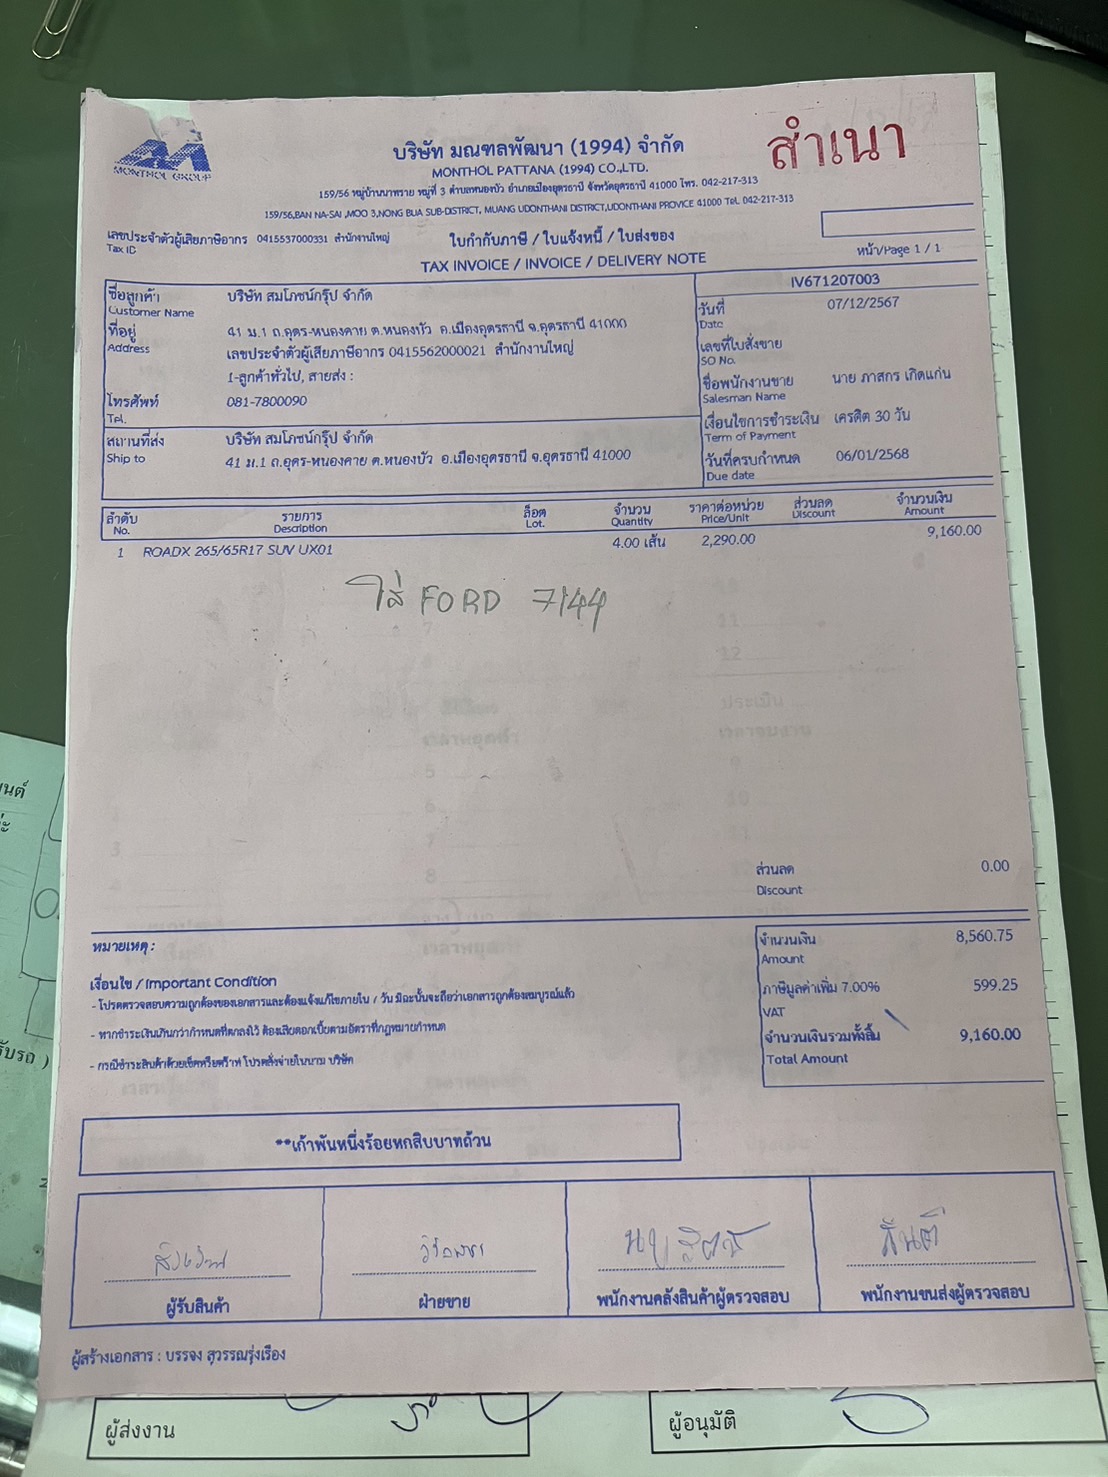 MONTHOL GROUP
บริษัท มณฑลพัฒนา (1994) จำกัด
สำเนา
MONTHOL PATTANA (1994) CO.,LTD.
159/56 หมู่บ้านนาทราย หมู่ที่ 3 ตำบลหนองบัว อำเภอเมืองอุดรธานี จังหวัดอุดรธานี 41000 โทร. 042-217-313
159/56,BAN NA-SAI ,MOO 3,NONG BUA SUB-DISTRICT, MUANG UDONTHANI DISTRICT,UDONTHANI PROVICE 41000 Tel. 042-217-313
เลขประจำตัวผู้เสียภาษีอากร 0415537000331 สำนักงานใหญ่
Tax ID
ใบกำกับภาษี / ใบแจ้งหนี้ / ใบส่งของ
TAX INVOICE / INVOICE / DELIVERY NOTE
หน้า/Page 1 / 1
ชื่อลูกค้า บริษัท สมโภชน์กรุ๊ป จำกัด
Customer Name
ที่อยู่ 41 ม.1 ถ.อุดร-หนองคาย ต.หนองบัว อ.เมืองอุดรธานี จ.อุดรธานี 41000
Address เลขประจำตัวผู้เสียภาษีอากร 0415562000021 สำนักงานใหญ่
1-ลูกค้าทั่วไป, สายส่ง :
โทรศัพท์ 081-7800090
Tel.
สถานที่ส่ง บริษัท สมโภชน์กรุ๊ป จำกัด
Ship to 41 ม.1 ถ.อุดร-หนองคาย ต.หนองบัว อ.เมืองอุดรธานี จ.อุดรธานี 41000
IV671207003
วันที่ 07/12/2567
Date
เลขที่ใบสั่งขาย
SO No.
ชื่อพนักงานขาย นาย ภาสกร เกิดแก่น
Salesman Name
เงื่อนไขการชำระเงิน เครดิต 30 วัน
Term of Payment
วันที่ครบกำหนด 06/01/2568
Due date
ลำดับ รายการ ล็อต จำนวน ราคาต่อหน่วย ส่วนลด จำนวนเงิน
No. Description Lot. Quantity Price/Unit Discount Amount
1 ROADX 265/65R17 SUV UX01 4.00 เส้น 2,290.00 9,160.00
ใส่ FORD 7144
ส่วนลด 0.00
Discount
หมายเหตุ :
เงื่อนไข / Important Condition
- โปรดตรวจสอบความถูกต้องของเอกสารและต้องแจ้งแก้ไขภายใน 7 วัน มิฉะนั้นจะถือว่าเอกสารถูกต้องสมบูรณ์แล้ว
- หากชำระเงินเกินกว่ากำหนดที่ตกลงไว้ ต้องเสียดอกเบี้ยตามอัตราที่กฎหมายกำหนด
- กรณีชำระสินค้าด้วยเช็คหรือดร๊าฟ โปรดสั่งจ่ายในนาม บริษัท
จำนวนเงิน 8,560.75
Amount
ภาษีมูลค่าเพิ่ม 7.00% 599.25
VAT
จำนวนเงินรวมทั้งสิ้น 9,160.00
Total Amount
**เก้าพันหนึ่งร้อยหกสิบบาทถ้วน
สันติ
ผู้รับสินค้า ฝ่ายขาย พนักงานคลังสินค้าผู้ตรวจสอบ พนักงานขนส่งผู้ตรวจสอบ
ผู้สร้างเอกสาร : บรรจง สุวรรณรุ่งเรือง
ผู้ส่งงาน ผู้อนุมัติ